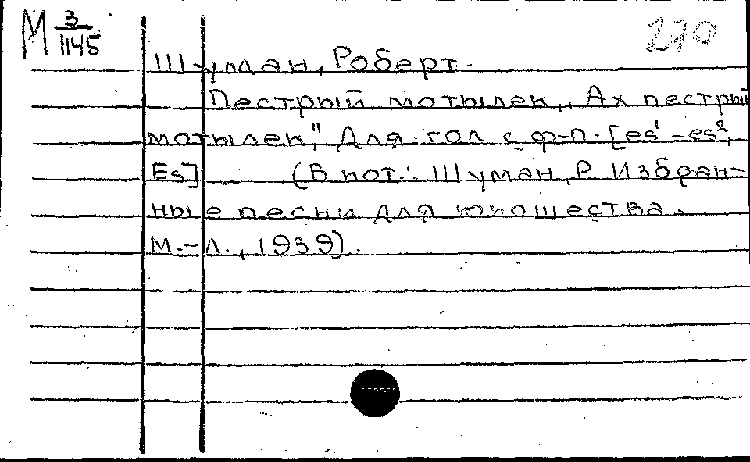 М 3/1145
210
Шуман, Роберт.
Пестрый мотылек „Ах пестрый
мотылек," Для гол с ф-п. [es¹-es²,
Es] (В нот.: Шуман, Р. Избран-
ные песни для юношества.
М.-Л., 1939).